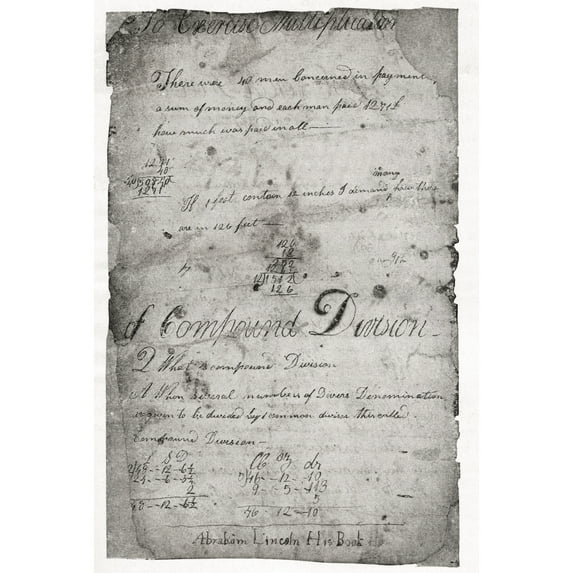 To Exercise Multiplication
There were 40 men Concerned in payment
a sum of money and each man paid 1271£
how much was paid in all—
1271
40
40|50840
1271
many
If 1 foot contain 12 inches I demand how there
are in 126 feet—
126
12
12|1512
126
of Compound Division—
Q What is compound Division
A When several numbers of Divers Denomination
is given to be divided by 1 common divisor this called
Compound Division—
£ S D
24-6-
2
lb oz dr
46-12-10
9-5-
5
46-12-10
Abraham Lincoln His Book